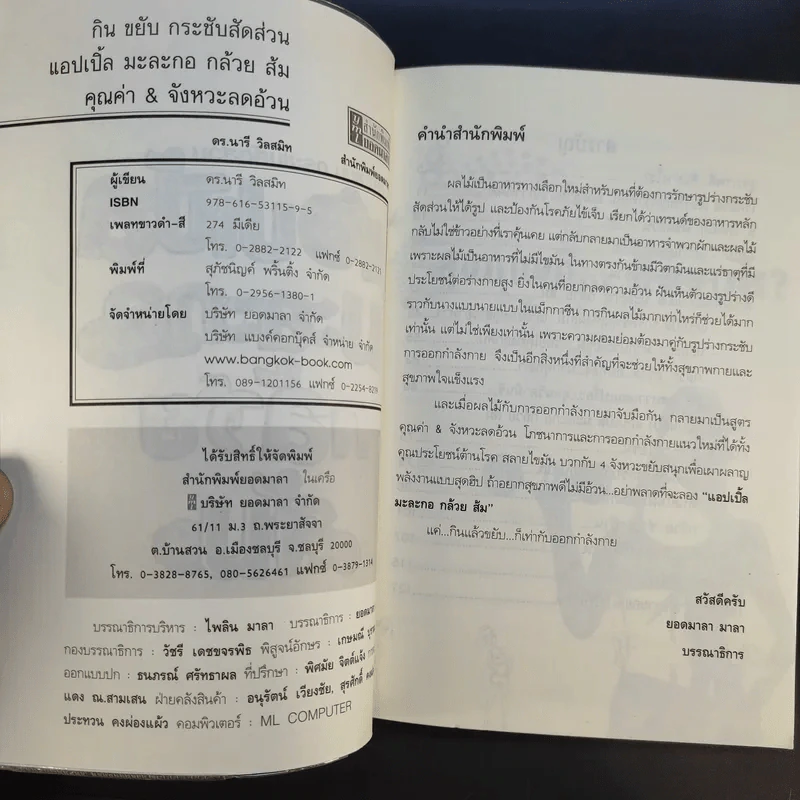 กิน ขยับ กระชับสัดส่วน
แอปเปิ้ล มะละกอ กล้วย ส้ม
คุณค่า & จังหวะลดอ้วน
ดร.นารี วิลสมิท
สำนักพิมพ์ยอดมาลา
ผู้เขียน ดร.นารี วิลสมิท
ISBN 978-616-53115-9-5
เพลทขาวดำ-สี 274 มีเดีย
โทร. 0-2882-2122 แฟกซ์ 0-2882-2121
พิมพ์ที่ สุภัชนิญค์ พริ้นติ้ง จำกัด
โทร. 0-2956-1380-1
จัดจำหน่ายโดย บริษัท ยอดมาลา จำกัด
บริษัท แบงค์คอกบุ๊คส์ จำหน่าย จำกัด
www.bangkok-book.com
โทร. 089-1201156 แฟกซ์
ได้รับสิทธิ์ให้จัดพิมพ์
สำนักพิมพ์ยอดมาลา ในเครือ
บริษัท ยอดมาลา จำกัด
61/11 ม.3 ถ.พระยาสัจจา
ต.บ้านสวน อ.เมืองชลบุรี จ.ชลบุรี 20000
โทร. 0-3828-8765, 080-5626461 แฟกซ์ 0-3879-1314
บรรณาธิการบริหาร : ไพลิน มาลา บรรณาธิการ :
กองบรรณาธิการ : วัชรี เดชขจรพิธ พิสูจน์อักษร : เกษมณี
ออกแบบปก : ธนภรณ์ ศรัทธาผล ที่ปรึกษา : พิศมัย จิตต์แจ้ง
แดง ณ.สามเสน ฝ่ายคลังสินค้า : อนุรัตน์ เวียงชัย, สุรศักดิ์
ประทวน คงผ่องแผ้ว คอมพิวเตอร์ : ML COMPUTER
คำนำสำนักพิมพ์
ผลไม้เป็นอาหารทางเลือกใหม่สำหรับคนที่ต้องการรักษารูปร่างกระชับ
สัดส่วนให้ได้รูป และป้องกันโรคภัยไข้เจ็บ เรียกได้ว่าเทรนด์ของอาหารหลัก
กลับไม่ใช่ข้าวอย่างที่เราคุ้นเคย แต่กลับกลายมาเป็นอาหารจำพวกผักและผลไม้
เพราะผลไม้เป็นอาหารที่ไม่มีไขมัน ในทางตรงกันข้ามมีวิตามินและแร่ธาตุที่มี
ประโยชน์ต่อร่างกายสูง ยิ่งในคนที่อยากลดความอ้วน ฝันเห็นตัวเองรูปร่างดี
ราวกับนางแบบนายแบบในแม็กกาซีน การกินผลไม้มากเท่าไหร่ก็ช่วยได้มาก
เท่านั้น แต่ไม่ใช่เพียงเท่านั้น เพราะความผอมย่อมต้องมาคู่กับรูปร่างกระชับ
การออกกำลังกาย จึงเป็นอีกสิ่งหนึ่งที่สำคัญที่จะช่วยให้ทั้งสุขภาพกายและ
สุขภาพใจแข็งแรง
และเมื่อผลไม้กับการออกกำลังกายมาจับมือกัน กลายมาเป็นสูตร
คุณค่า & จังหวะลดอ้วน โภชนาการและการออกกำลังกายแนวใหม่ที่ได้ทั้ง
คุณประโยชน์ต้านโรค สลายไขมัน บวกกับ 4 จังหวะขยับสนุกเพื่อเผาผลาญ
พลังงานแบบสุดฮิป ถ้าอยากสุขภาพดีไม่มีอ้วน...อย่าพลาดที่จะลอง “แอปเปิ้ล
มะละกอ กล้วย ส้ม”
แค่...กินแล้วขยับ...ก็เท่ากับออกกำลังกาย
สวัสดีครับ
ยอดมาลา มาลา
บรรณาธิการ